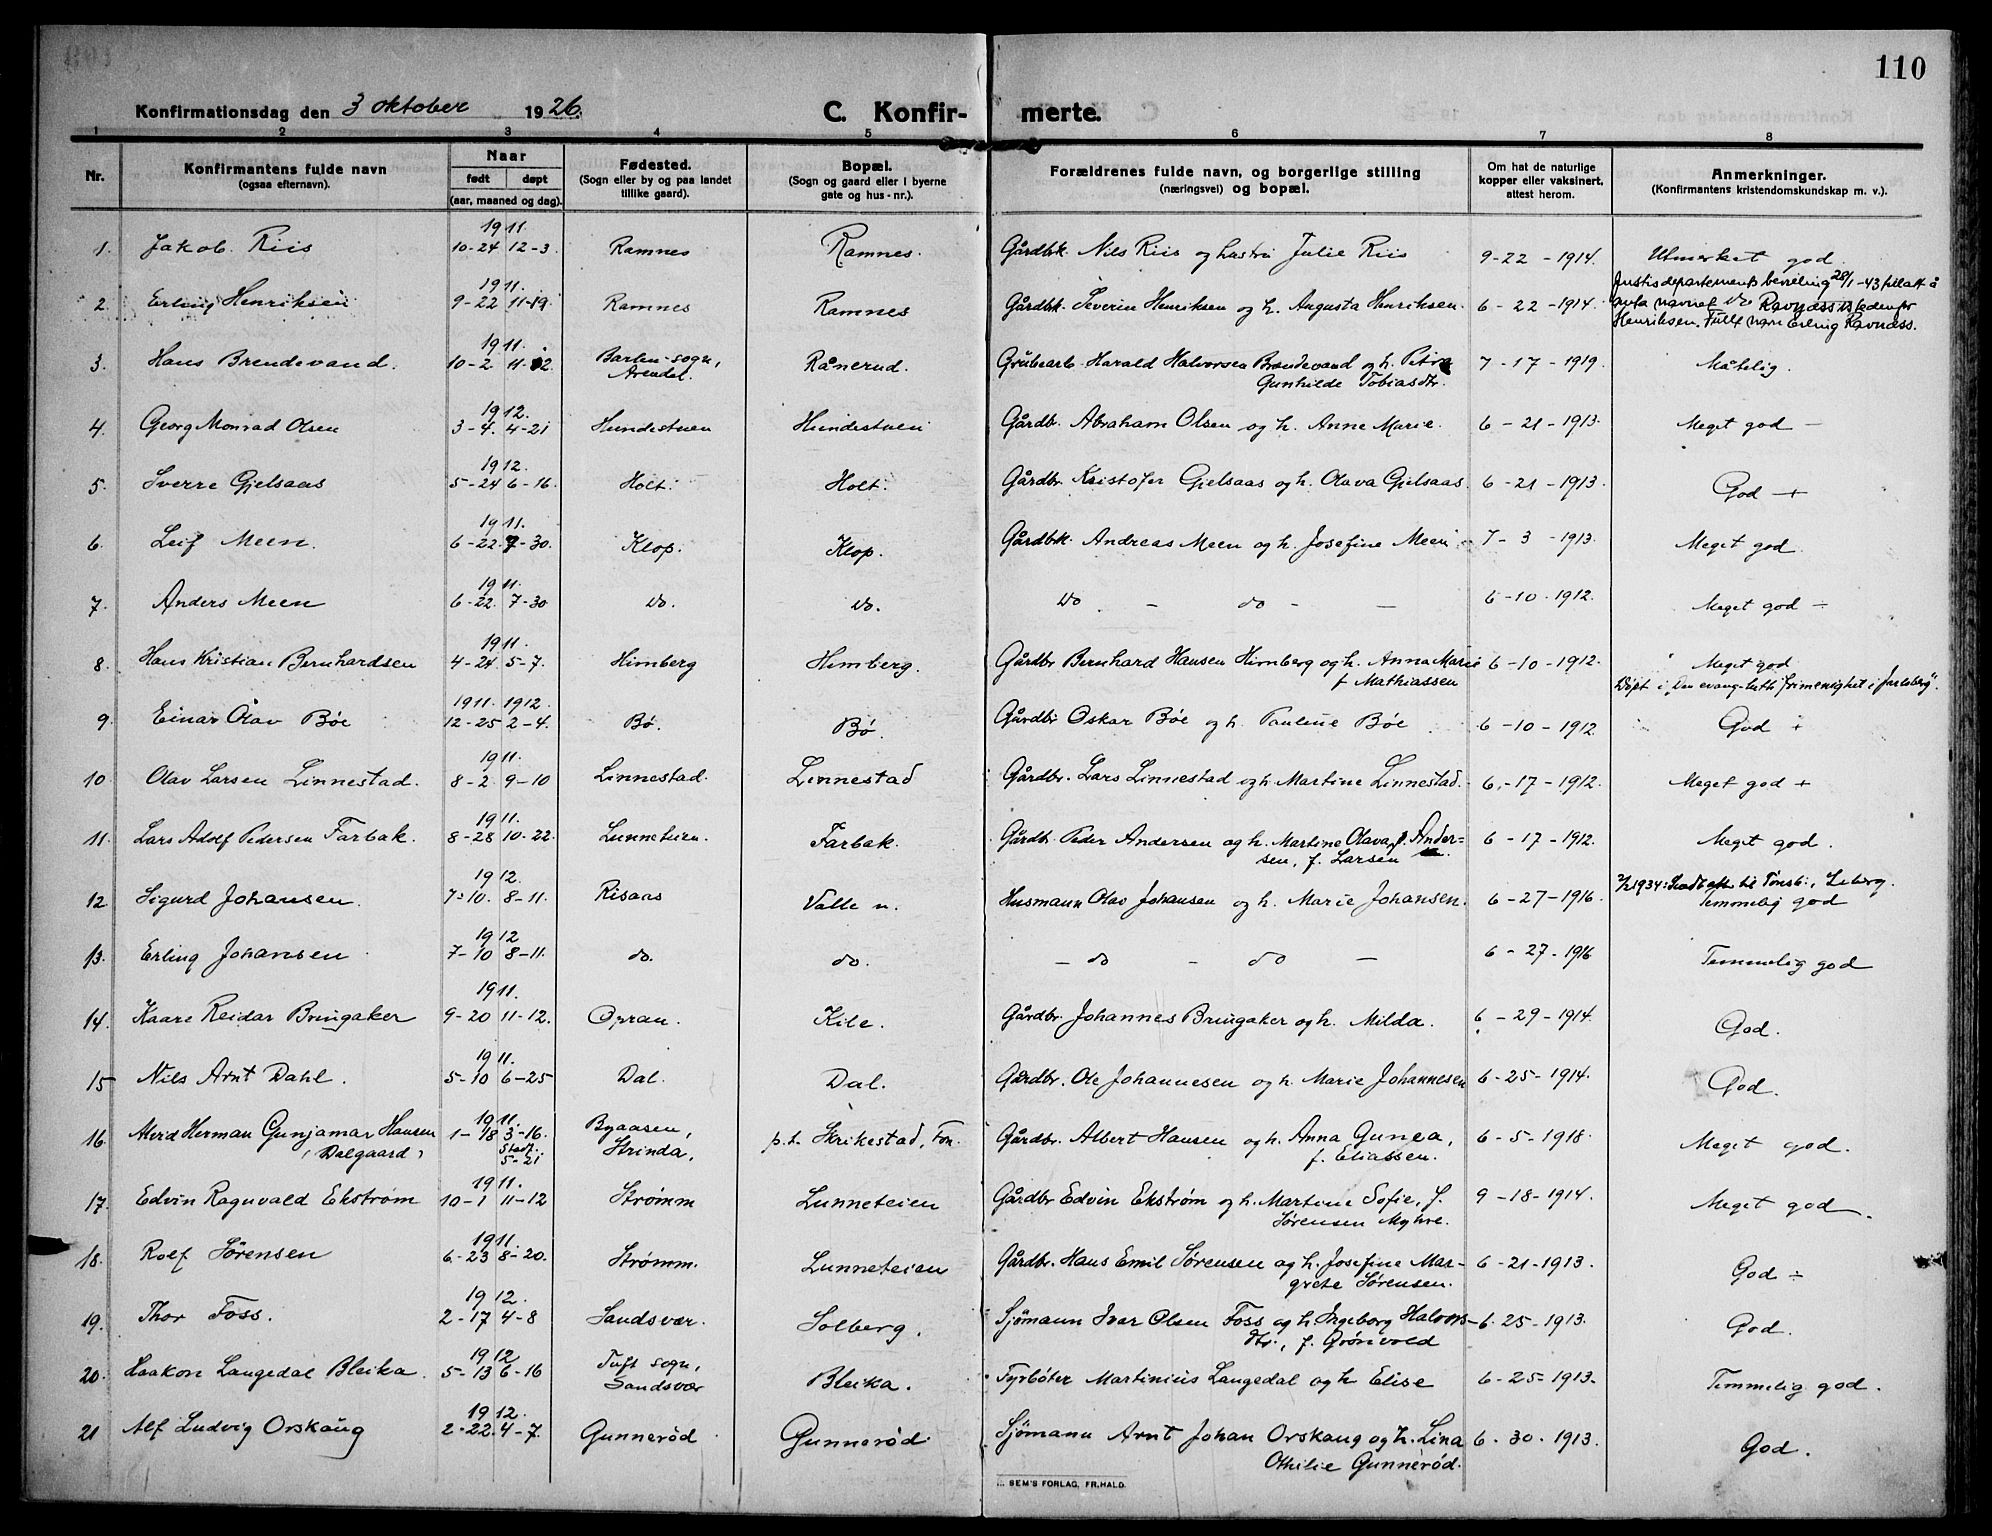 110
Konfirmationsdag den 3 oktober 1926.
C. Konfir- merte.
1 2 3 4 5 6 7 8
Nr.
Konfirmantens fulde navn
(ogsaa efternavn).
Naar
født døpt
(aar, maaned og dag).
Fødested.
(Sogn eller by og paa landet
tillike gaard).
Bopæl.
(Sogn og gaard eller i byerne
gate og hus-nr.).
Forældrenes fulde navn, og borgerlige stilling
(næringsvei) og bopæl.
Om hat de naturlige
kopper eller vaksinert,
attest herom.
Anmerkninger.
(Konfirmantens kristendomskundskap m. v.).
1911.
1. Jakob Riis 10-24 12-3 Ramnes Ramnes. Gårdbrk. Nils Riis og hustru Julie Riis 9-22-1914. Utmerket god
1911.
Justisdepartements bevilling 28/1-43 tillatt å
2. Erling Henriksen 9-22 11-19 Ramnes Ramnes Gårdbrk. Severin Henriksen og h. Augusta Henriksen. 6-22-1914. anta navnet Ravnæss istedenfor
Henriksen. Fullt navn Erling Ravnæss.
1911.
3. Hans Brendevand. 10-2 11-12 Barbu sogn, Rånerud. Grubearb. Harald Halvorsen Brændevand og h. Petra 7-17-1919. Måtelig.
Arendal. Gunhilde Tobiasdtr.
1912.
4. Georg Monrad Olsen 3-4. 4-21 Hundestuen Hundestuen Gårdbr. Abraham Olsen og h. Anne Marie. 6-21-1913. Meget god -
1912.
5. Sverre Gjelsaas 5-24 6-16. Holt. Holt. Gårdbr. Kristofer Gjelsaas og h. Olava Gjelsaas. 6-21-1913. God +
1911.
6. Leif Meen. 6-22. 7-30. Klop. Klop. Gårdbrk. Andreas Meen og h. Josefine Meen 7-3-1913. Meget god.
1911.
7. Anders Meen 6-22. 7-30 do. do. do - do - - 6-10-1912. Meget god ÷
1911.
8. Hans Kristian Bernhardsen 4-24 5-7. Himberg Himberg. Gårdbr Bernhard Hansen Himberg og h. Anna Marie 6-10-1912. Meget god
f Mathiassen Døpt i „Den evang-luth frimenighet i Jarlsberg".
1911. 1912.
9. Einar Olav Bøe 12-25 2-4. Bø. Bø. Gårdbr Oskar Bøe og h. Pauline Bøe 6-10-1912 God +
1911.
10. Olav Larsen Linnestad. 8-2. 9-10 Linnestad. Linnestad Gårdbr. Lars Linnestad og h. Martine Linnestad. 6-17-1912. Meget god +
1911.
11. Lars Adolf Pedersen Farbak. 8-28 10-22. Lunneteien. Farbak. Gårdbr. Peder Andersen og h. Martine Olava, f. Ander- 6-17-1912. Meget god.
sen, f. Larsen
1912.
12 Sigurd Johansen. 7-10. 8-11. Risaas Valle n. Husmann Olav Johansen og h. Marie Johansen. 6-27-1916. 1934: til Tønsb.,
Temmelig god
1912
13. Erling Johansen 7-10 8-11. do. do. - do - do - 6-27-1916 Temmelig god
1911.
14. Kaare Reidar Bringaker 9-20 11-12. Opran. Kile. Gårdbr. Johannes Bringaker og h. Milda. 6-29-1914. God.
1911.
15 Nils Arnt Dahl. 5-10 6-25 Dal. Dal. Gårdbr. Ole Johannesen og h. Marie Johannesen 6-25-1914. God.
1911.
16. Alvid Herman Gunjamar Hansen 1-18 3-16. Byaasen, p.t. Skrikestad, Fon. Gårdbr. Albert Hansen og h. Anna Gunea, 6-5-1918. Meget god.
(Dalgaard) Stadf. 5-21 Strinda, f. Eliassen.
1911.
17. Edvin Ragnvald Ekstrøm 10-1 11-12 Strømm Lunneteien Gårdbr Edvin Ekstrøm og h. Martine Sofie, f. 9-18-1914. Meget god.
Sørensen Myhre.
1911.
18. Rolf Sørensen 6-23 8-20. Strømm. Lunneteien Gårdbr. Hans Emil Sørensen og h. Josefine Mar- 6-21-1913. God ÷
grete Sørensen.
1912.
19. Thor Foss. 2-17 4-8 Sandsvær. Solberg. Sjømann Ivar Olsen Foss og h Ingeborg Halvors- 6-25-1913. God.
dtr., f. Grønvold
1912
20. Haakon Langedal Bleika. 5-13 6-16 Tuft sogn, Bleika. Fyrbøter Martinius Langedal og h Elise 6-25-1913. Temmelig god.
Sandsvær
1912.
21 Alf Ludvig Orskaug 2-22. 4-7. Gunnerød Gunnerød. Sjømann Arnt Johan Orskaug og h. Lina 6-30-1913. God.
Othilie Gunnerød.
SEM'S FORLAG, FR.HALD.